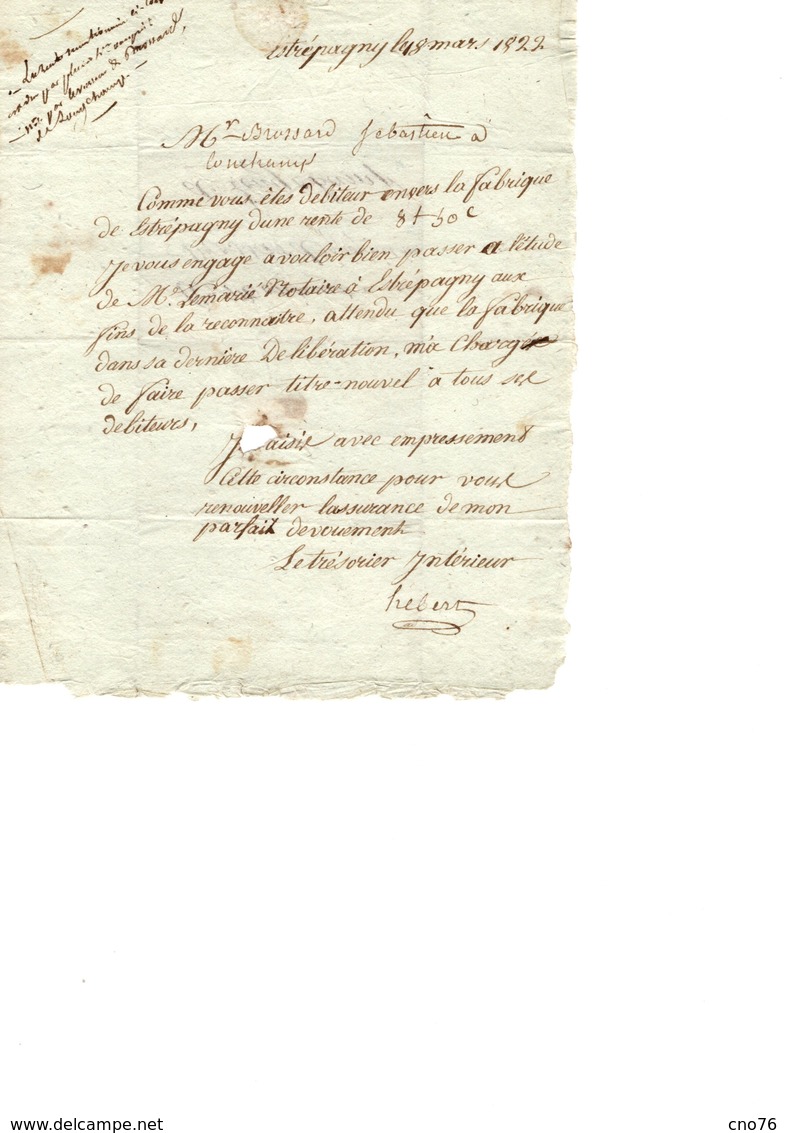 Estrépagny le 18 mars 1822
Mr. Brossard Sebastien a
Conchamp
Comme vous êtes debiteur envers la fabrique
de Estrépagny dune rente de 8 50c
Je vous engage a vouloir bien passer a l'étude
de Me. Lemarié Notaire à Estrépagny aux
fins de la reconnaitre, attendu que la fabrique
dans sa dernière Delibération, m'a Chargé
de faire passer titre-nouvel à tous ses
debiteurs,
Je saisis avec empressement
Cette circonstance pour vous
renouveller lassurance de mon
parfait devouement
Le trésorier Intérieur
hebert
www.delcampe.net
cno76